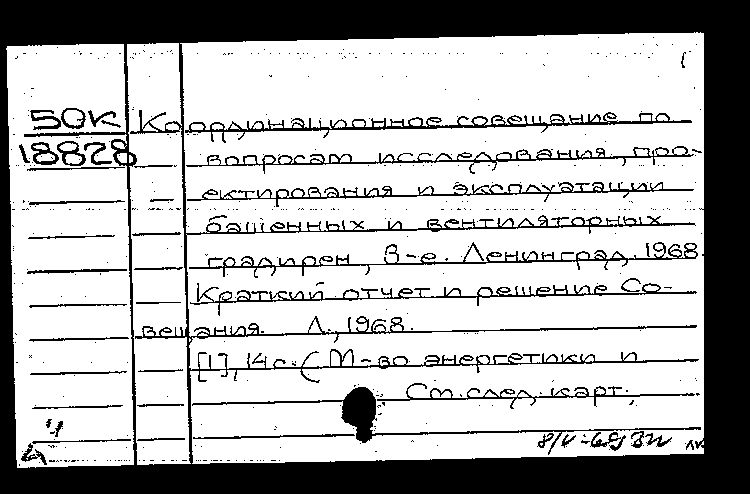 50К Координационное совещание по
18828 вопросам исследования, про-
ектирования и эксплуатации
башенных и вентиляторных
градирен, 3-е. Ленинград. 1968.
Краткий отчет и решение Со-
вещания. Л., 1968.
[1], 14 с. (М-во энергетики и
См. след. карт.